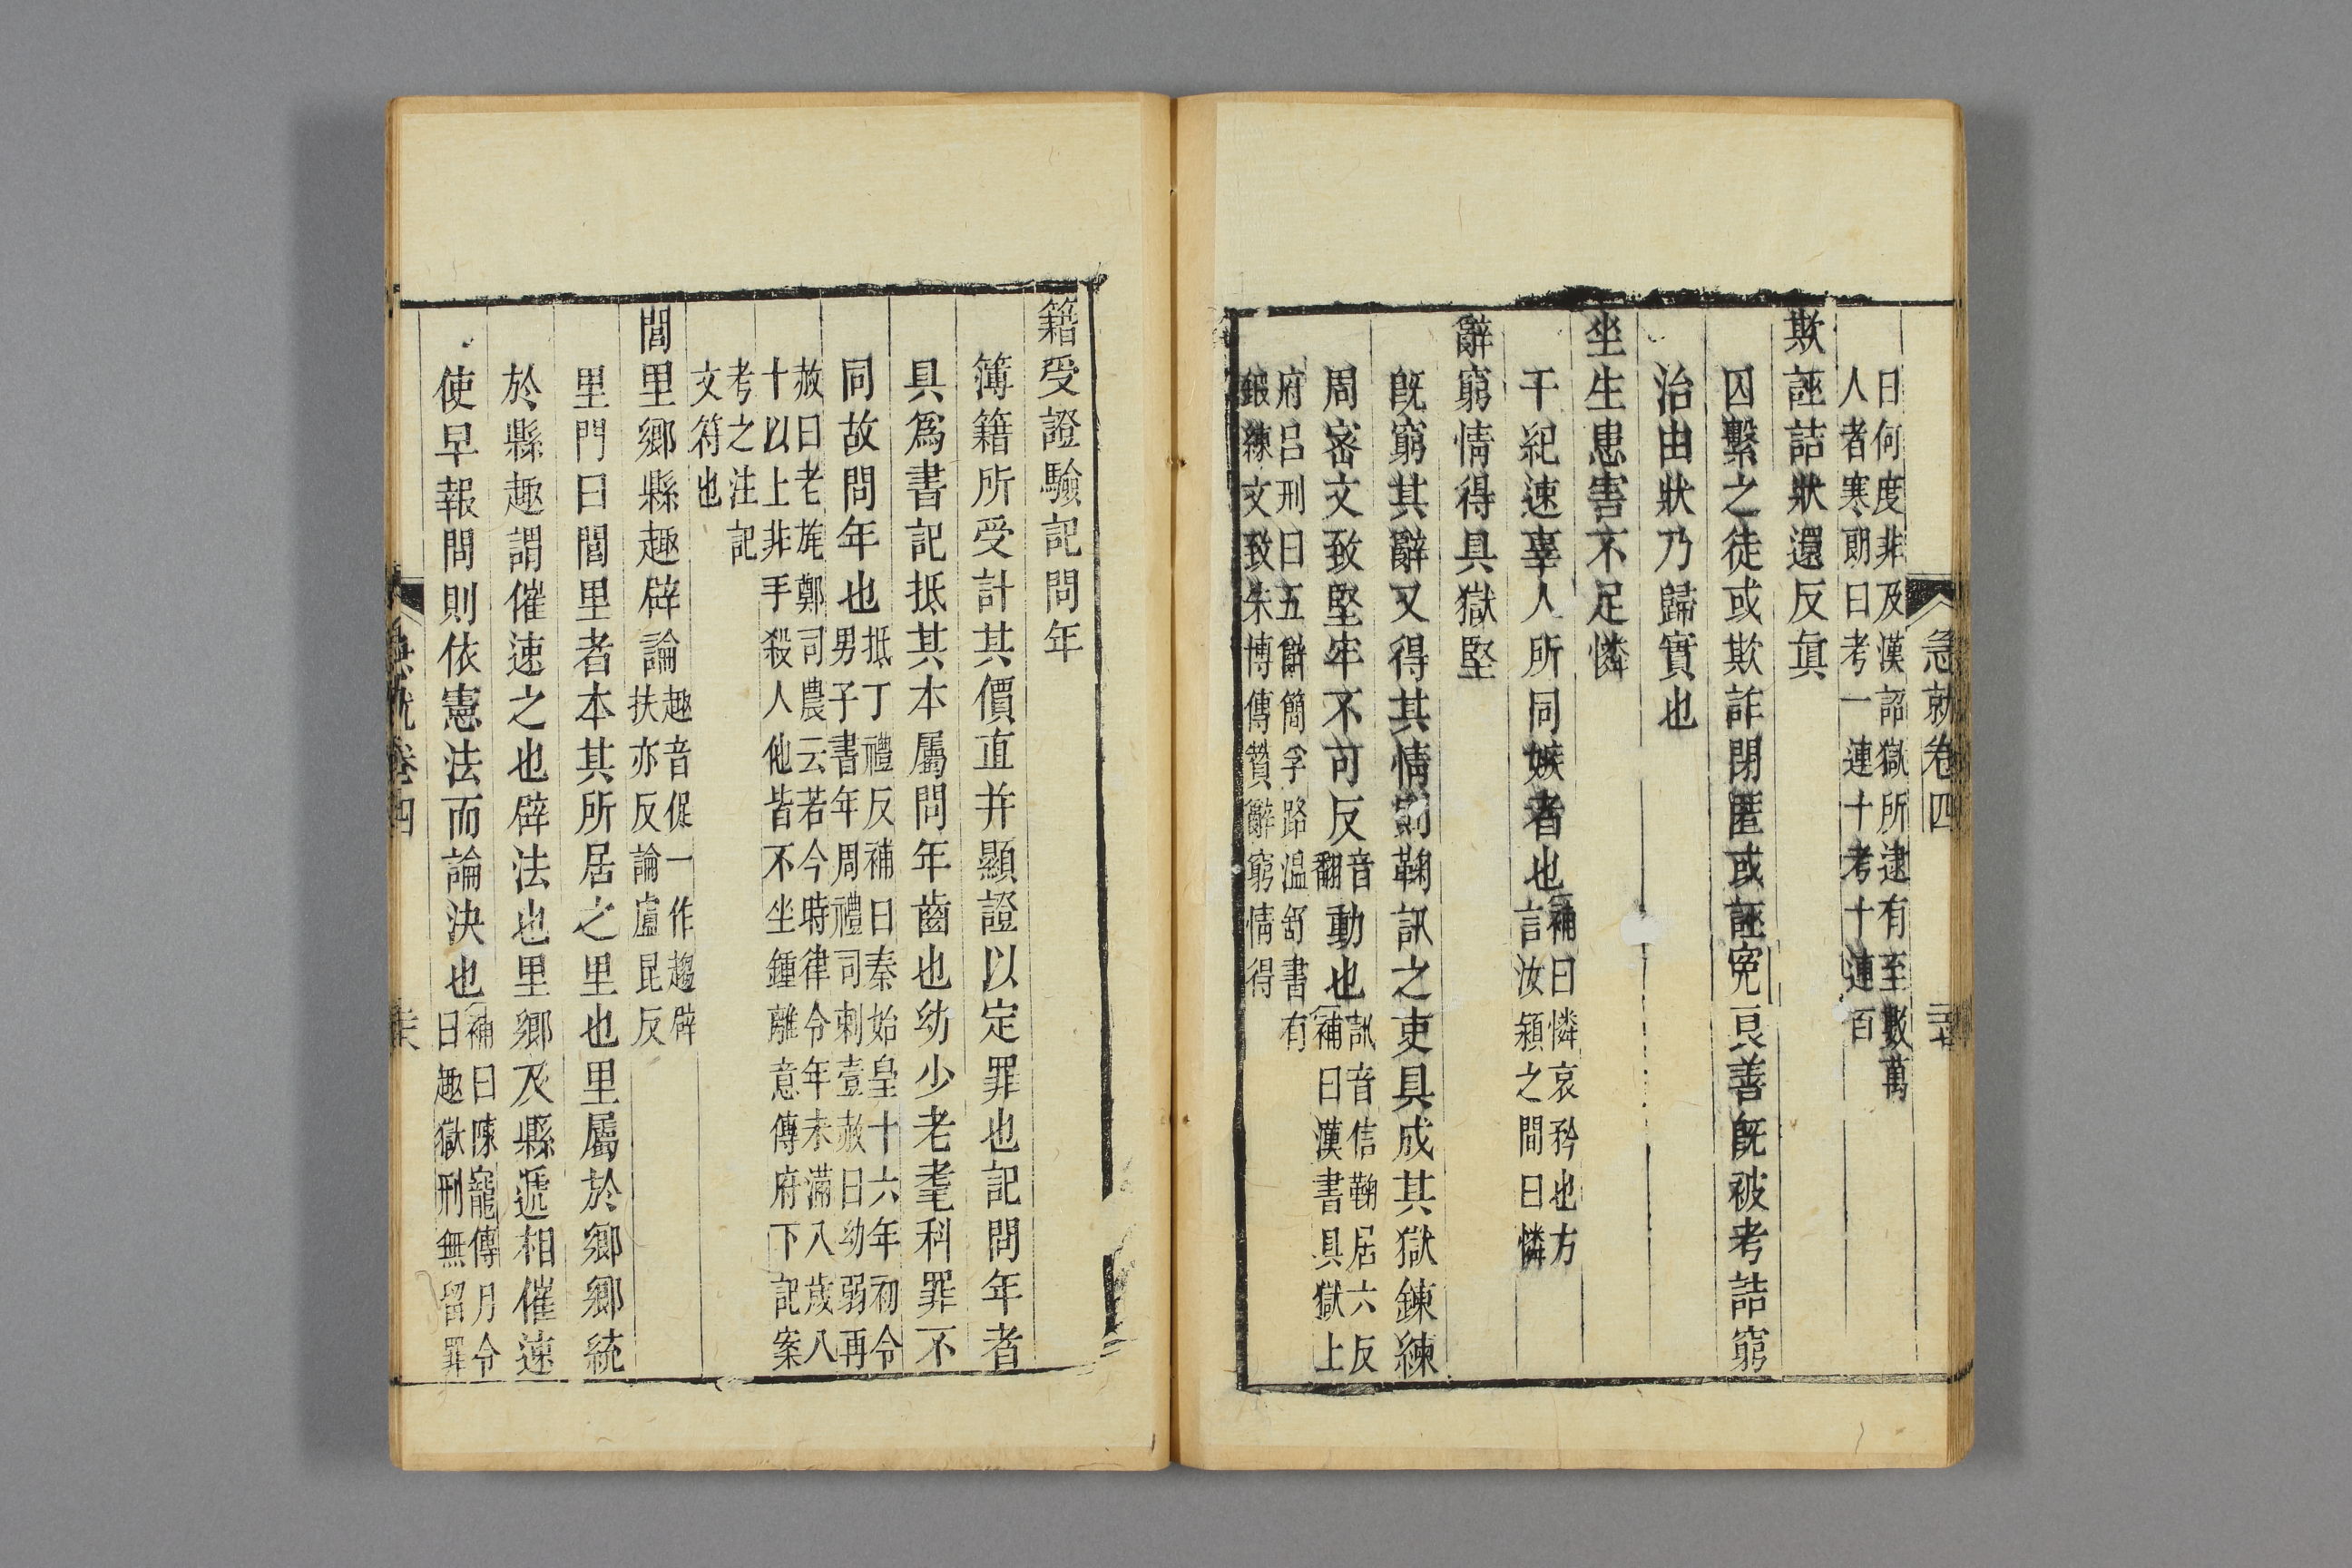 急就卷四
曰何度非及漢詔獄所逮有至數萬
人者寒朗曰考一連十考十連百
欺誣詰狀還反真
囚繫之徒或欺詐閉匿或誣冤良善既被考詰窮
治由狀乃歸實也
坐生患害不足憐
干紀速辜人所同嫉者也
補曰憐哀矜也方
言汝潁之間曰憐
辭窮情得具獄堅
既窮其辭又得其情則鞠訊之吏具成其獄鍊練
周密文致堅牢不可反
音
翻
動也
訊音信鞠居六反
補曰漢書具獄上
府呂刑曰五辭簡孚路溫舒書有
鍛練文致朱博傳贊辭窮情得
籍受證驗記問年
簿籍所受計其價直并顯證以定罪也記問年者
具為書記抵其本屬問年齒也幼少老耄科罪不
同故問年也
抵丁禮反補曰秦始皇十六年初令
男子書年周禮司刺壹赦曰幼弱再
赦曰老旄鄭司農云若今時律令年未滿八歲八
十以上非手殺人他皆不坐鍾離意傳府下記案
考之注記
文符也
閭里鄉縣趣辟論
趣音促一作趨辟
扶亦反論盧昆反
里門曰閭里者本其所居之里也里屬於鄉鄉統
於縣趣謂催速之也辟法也里鄉及縣遞相催速
使早報問則依憲法而論決也
補曰陳寵傳月令
曰趣獄刑無留罪